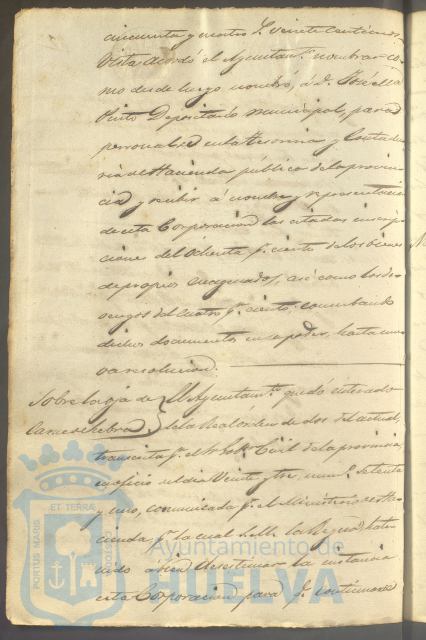 cincuenta y cuatro L veinte centimos.
Vista acordó el Ayuntamto nombrar co-
mo desde luego nombró, á D.
Pinto Depositario municipal, para q
persona en la Tesoreria y Contadu-
ria de Hacienda pública de la provin-
cia y recibir á nombre y representacion
de esta Corporacion las citadas inscrip-
ciones del ochenta p. ciento de los bienes
de propios enagenados, asi como los de-
vengos del cuatro p. ciento, conservando
dichos documentos en su poder, hasta nue-
va resolucion.
Sobre la
El Ayuntamto quedó enterado
de la Real órden de dos del actual,
transcrita p. el Sr Gobr Civil de la provincia,
en oficio del dia Veinte y tres, numo setenta
y uno, comunicada p. el Ministerio de Ha-
cienda p. la cual S. M. la Reyna ha te-
nido á bien desestimar la instancia
esta Corporacion para q. continuase
PORTUS MARIS
ET TERRÆ
CUSTODIA
Ayuntamiento de
HUELVA